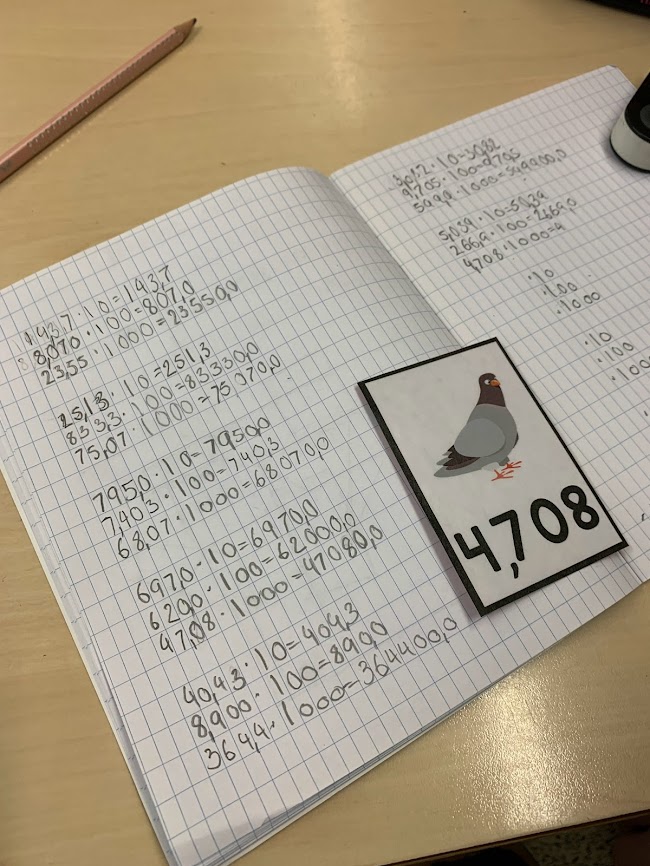 143,7 · 10 = 143,7
8,070 · 100 = 807,0
23,55 · 1000 = 23550,0
25,13 · 10 = 251,3
833,3 · 100 = 83330,0
75,07 · 1000 = 75070,0
795,0 · 10 = 7950,0
7,403 · 100 = 740,3
68,07 · 1000 = 68070,0
697,0 · 10 = 6970,0
620,0 · 100 = 62000,0
47,08 · 1000 = 47080,0
40,43 · 10 = 404,3
8,900 · 100 = 890,0
364,4 · 1000 = 364400,0
· 10 =
· 100 =
· 1000 =
5,039 · 10 = 50,39
266,9 · 100 = 26690,0
4,708 · 1000 = 4
· 10
· 100
· 1000
· 10
· 100
· 1000
4,708